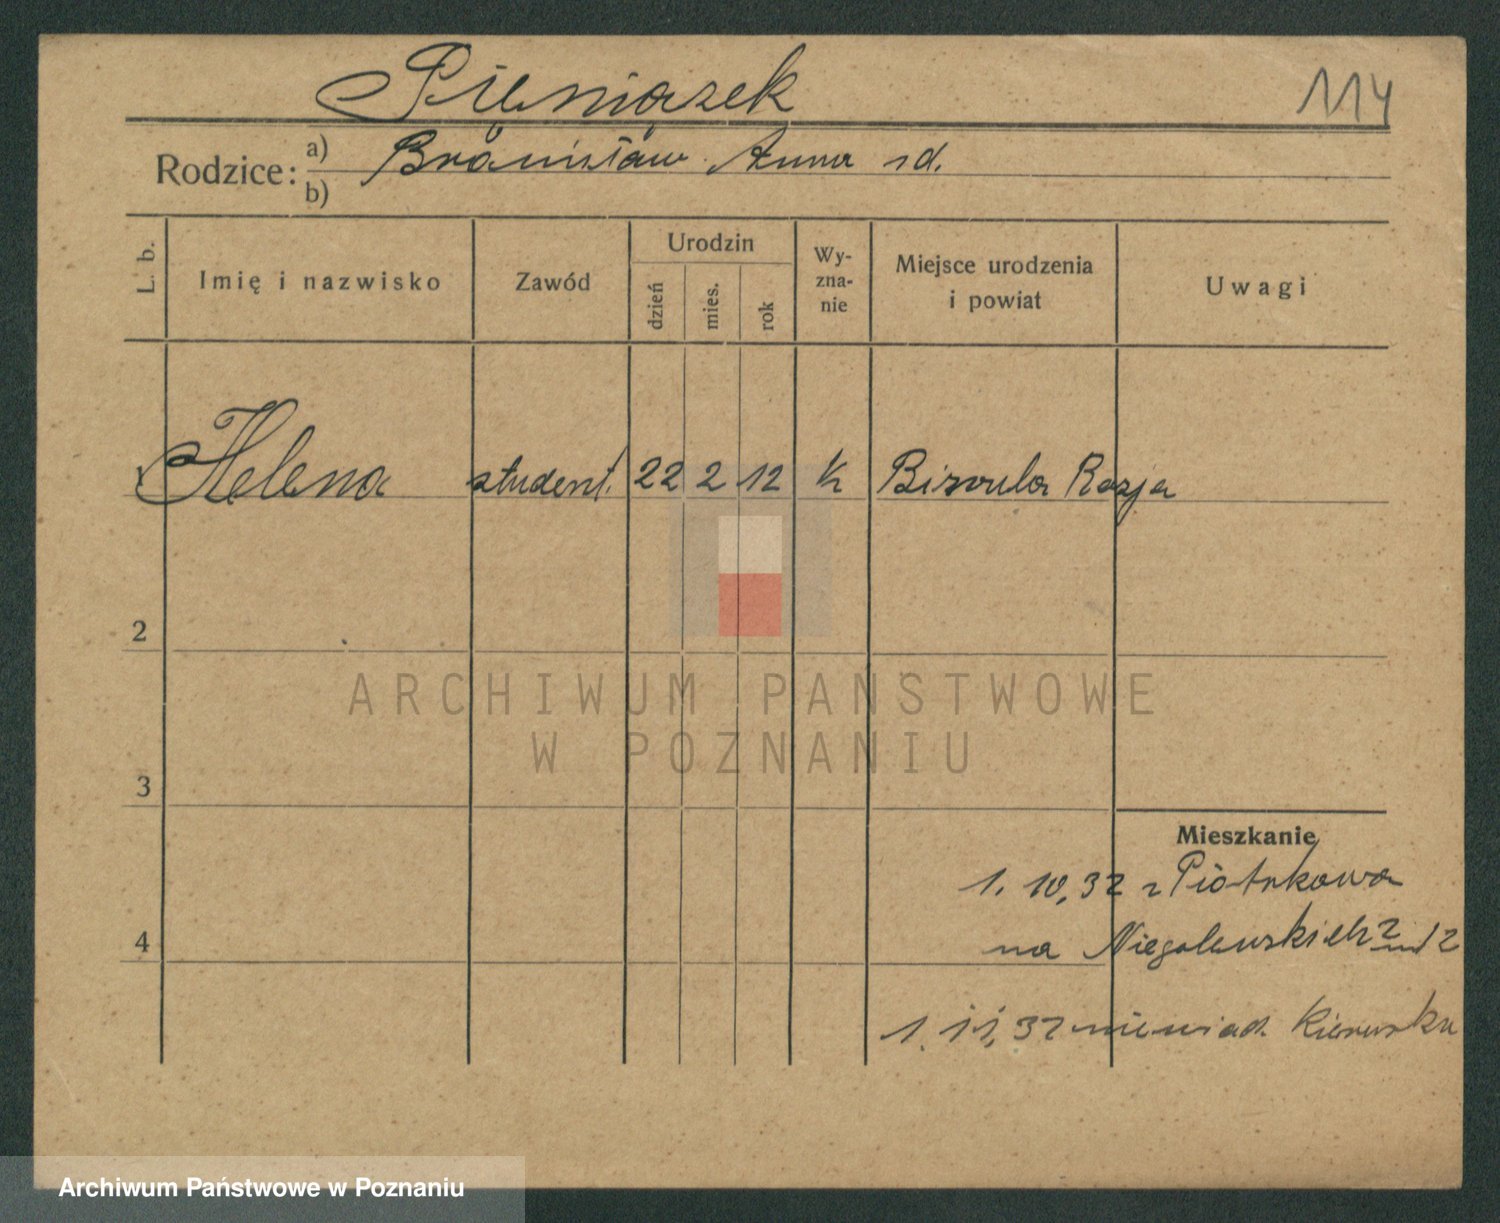 Pieniążek
114
Rodzice: a) Bronisław Anna sd.
b)
L. b.
Imię i nazwisko
Zawód
Urodzin
dzień
mies.
rok
Wy-
zna-
nie
Miejsce urodzenia
i powiat
Uwagi
Helena student. 22 2 12 K Birzula Rosja
2
3
4
Mieszkanie
1. 10, 32 z Piotrkowa
na Niegolewskich 2
1. 11, 32 niewiad. kierunku
ARCHIWUM PAŃSTWOWE
W POZNANIU
Archiwum Państwowe w Poznaniu